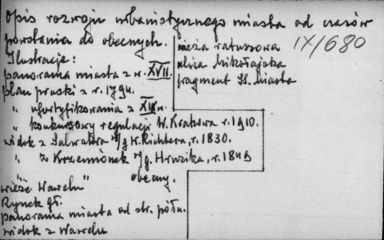 Opis rozwoju urbanistycznego miasta od czasów
powstania do obecnych.
Ilustracje:
panorama miasta z w. XVII.
plan pruski z r. 1794.
" ufortyfikowania z XIX w.
" konkursowy regulacji W. Krakowa r. 1910.
widok z Salwatora m/g W. Richtera, r. 1830.
" z Krzemionek m/g. r. 1845
" obecny.
wieże Wawelu
Rynek Gł.
panorama miasta od str. półn.
widok z Wawelu
wieża ratuszowa
ulica Mikołajska
fragment St. Miasta
IX/680